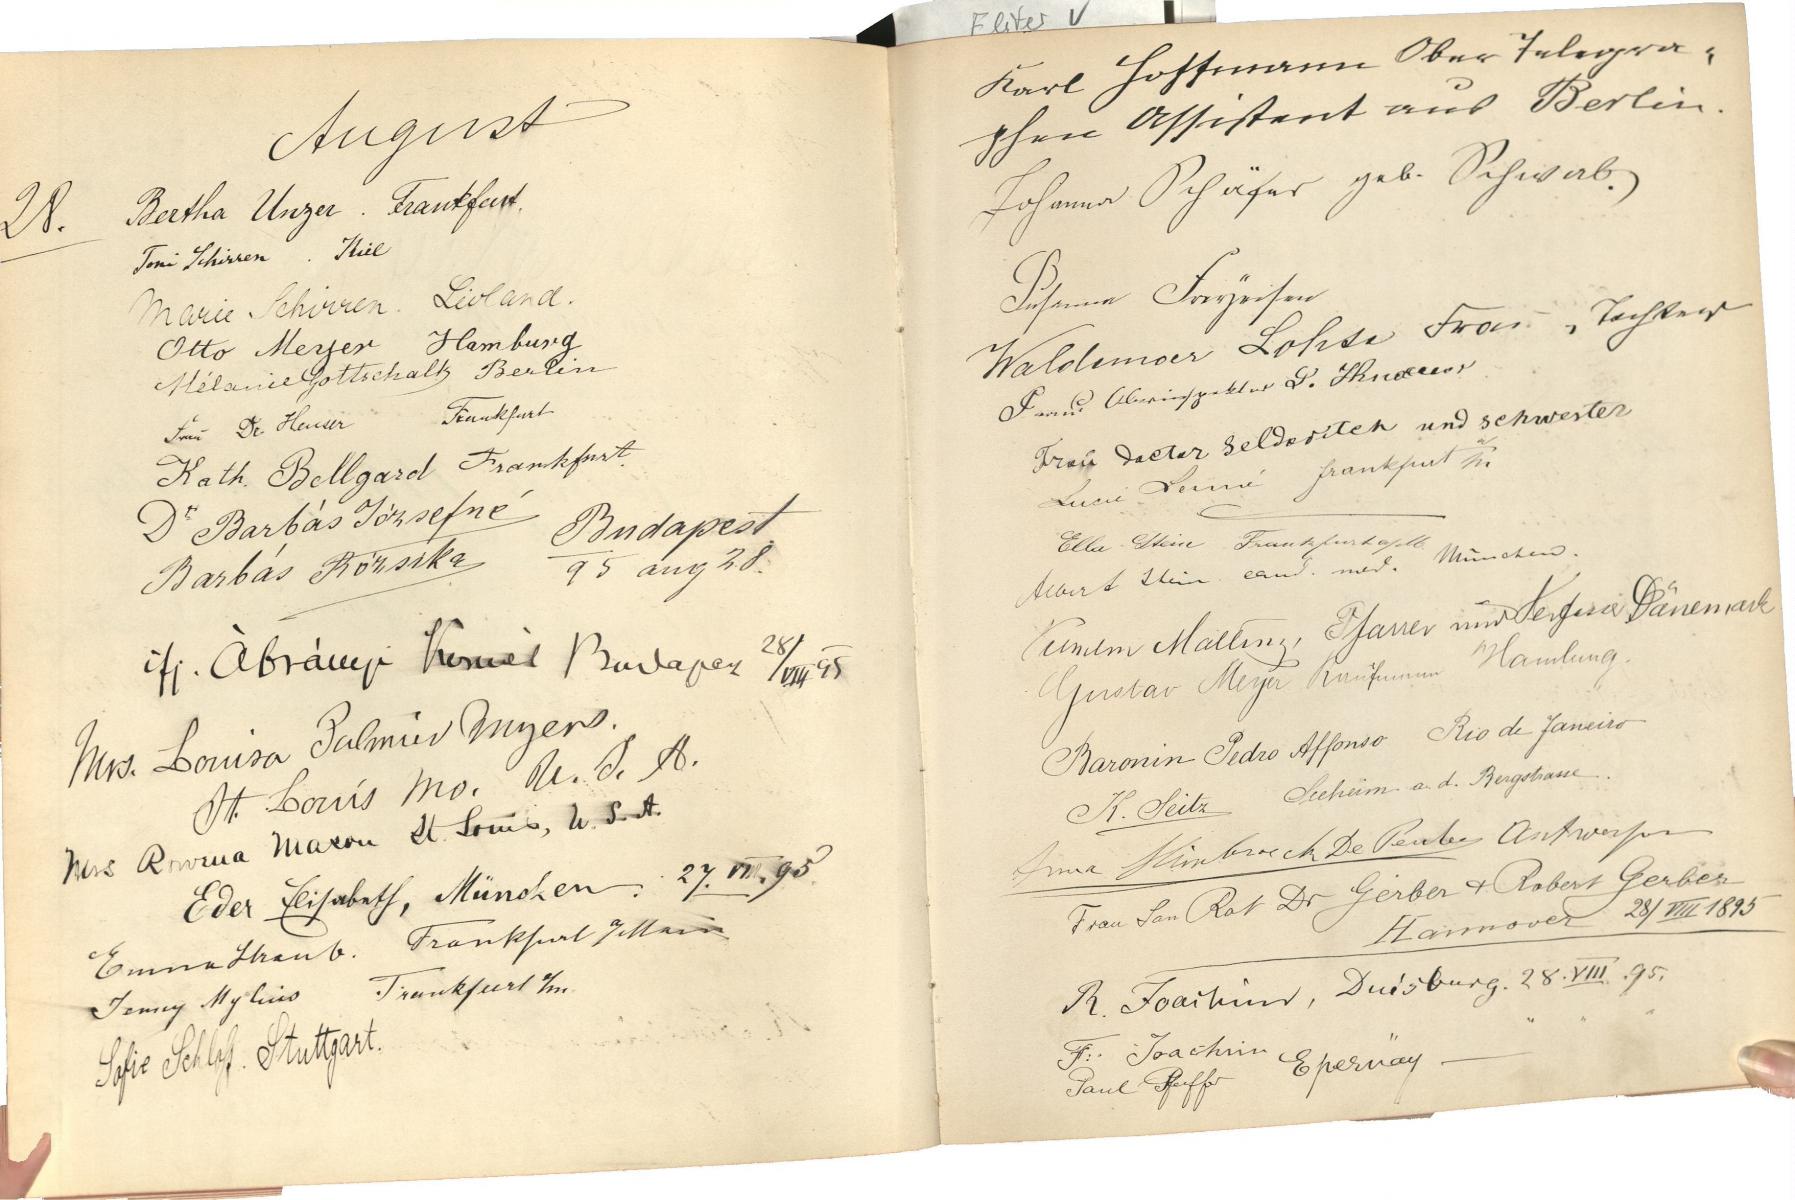 August
28.
Bertha Unzer. Frankfurt.
Toni Schirren. Kiel
Marie Schirren. Livland.
Otto Meyer Hamburg
Mélanie Gottschalk Berlin
Frau Dr Heuser Frankfurt
Kath. Bellgard Frankfurt.
Dr Barbás Józsefné
Barbás Rózsika
Budapest
95 aug 28.
ifj. Ábrányi Kornél Budapest 28/VIII 95
Mrs. Louisa Palmier Myers.
St. Louis Mo. U. S. A.
Mrs Rowena Mason St. Louis, U. S. A.
Eder Elisabeth, München. 27. VIII. 95
Emma Straub. Frankfurt a/Main
Jenny Mylius Frankfurt a/m.
Sofie Schloß. Stuttgart.
Eliter V
Karl Hoffmann Ober Telegra-
phen Assistent aus Berlin.
Johanna Schäfer geb. Schwab.
Susanna Freyeisen
Waldemar Lohse Frau u. Tochter
Frau Oberinspektor
Frau Doctor Seldovitch und Schwester
Lucie Frankfurt a/m
Ella Stein Frankfurt a/M
Albert Stein cand. med. München.
Malling, Pfarrer und Dänemark
Gustav Meyer Kaufmann Hamburg.
Baronin Pedro Affonso Rio de Janeiro
K. Seitz Seeheim a. d. Bergstrasse.
De Antwerpen
Frau San Rat Dr Gerber & Robert Gerber
Hannover 28/VIII 1895
R. Joachim, Duisburg. 28. VIII. 95.
F. Joachim " " "
Paul Pfeiffer Epernay